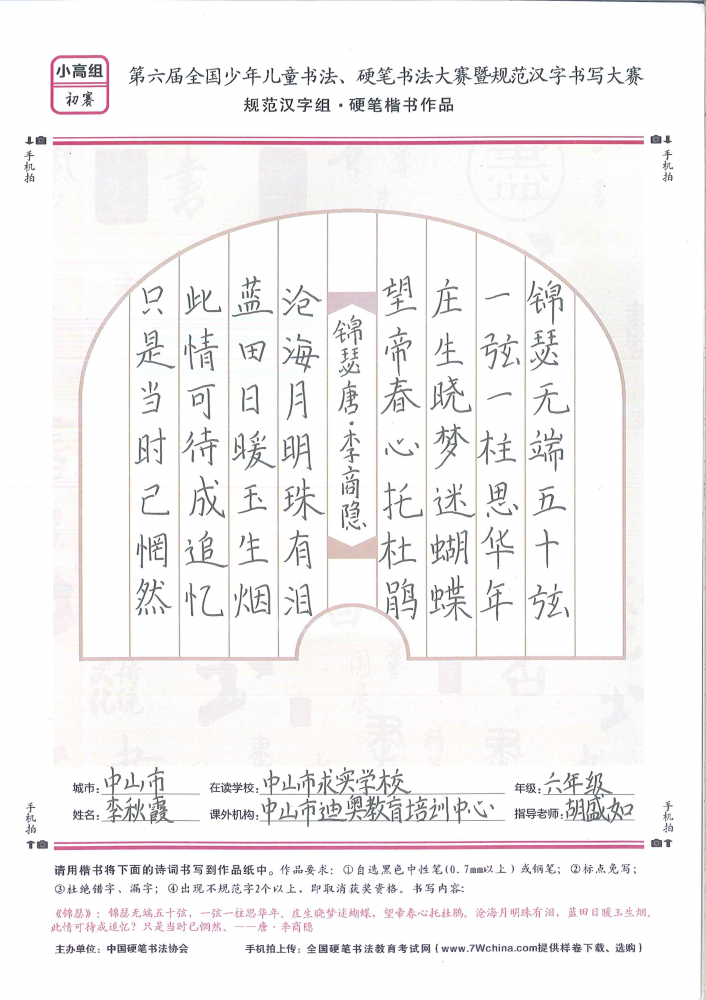 小高组
初赛
第六届全国少年儿童书法、硬笔书法大赛暨规范汉字书写大赛
规范汉字组·硬笔楷书作品
手机拍
手机拍
锦瑟无端五十弦
一弦一柱思华年
庄生晓梦迷蝴蝶
望帝春心托杜鹃
锦瑟唐·李商隐
沧海月明珠有泪
蓝田日暖玉生烟
此情可待成追忆
只是当时已惘然
城市:中山市 在读学校:中山市求实学校 年级:六年级
姓名:李秋霞 课外机构:中山市迪奥教育培训中心 指导老师:胡盛如
手机拍
手机拍
请用楷书将下面的诗词书写到作品纸中。作品要求:①自选黑色中性笔(0.7mm以上)或钢笔;②标点免写;
③杜绝错字、漏字;④出现不规范字2个以上,即取消获奖资格。书写内容:
《锦瑟》:锦瑟无端五十弦,一弦一柱思华年。庄生晓梦迷蝴蝶,望帝春心托杜鹃。沧海月明珠有泪,蓝田日暖玉生烟。
此情可待成追忆?只是当时已惘然。——唐·李商隐
主办单位:中国硬笔书法协会 手机拍上传:全国硬笔书法教育考试网(www.7Wchina.com提供样卷下载、选购)